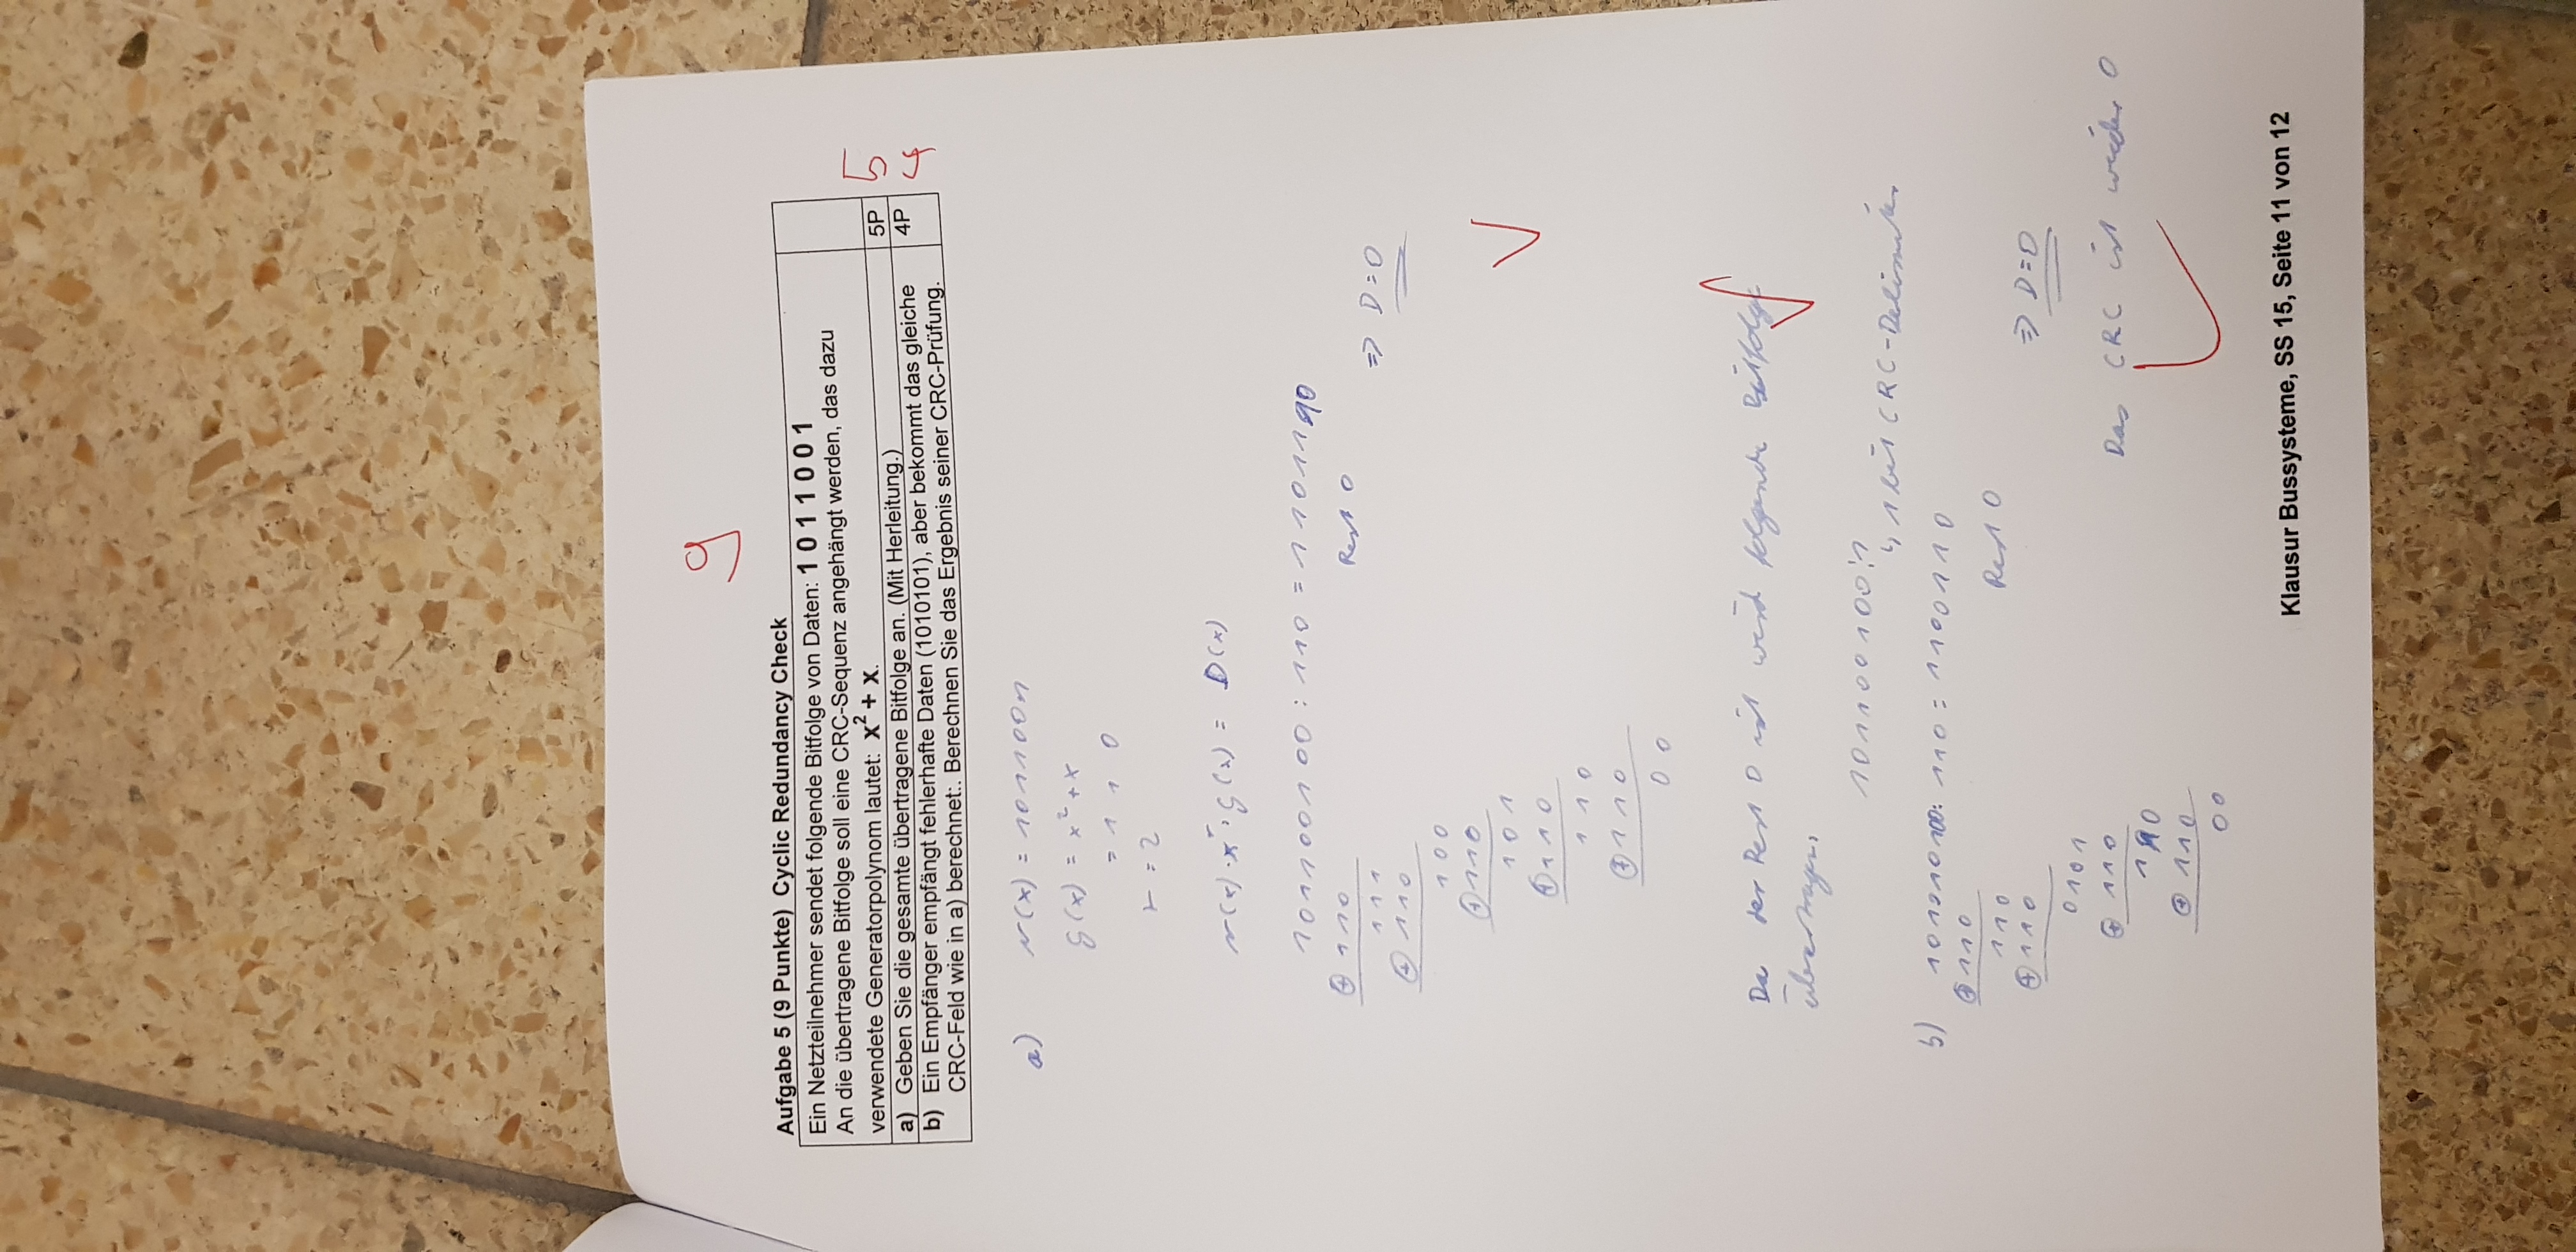 9
Aufgabe 5 (9 Punkte) Cyclic Redundancy Check
Ein Netzteilnehmer sendet folgende Bitfolge von Daten: 1 0 1 1 0 0 1
An die übertragene Bitfolge soll eine CRC-Sequenz angehängt werden, das dazu
verwendete Generatorpolynom lautet: x² + x.
a) Geben Sie die gesamte übertragene Bitfolge an. (Mit Herleitung.) 5P 5
b) Ein Empfänger empfängt fehlerhafte Daten (1010101), aber bekommt das gleiche 4P 4
CRC-Feld wie in a) berechnet:. Berechnen Sie das Ergebnis seiner CRC-Prüfung.
a) N(x) = 1011001
g(x) = x² + x
= 1 1 0
r = 2
N(x) · x^r : g(x) = D(x)
101100100 : 110 = 1101110
⊕ 110
Rest 0
111
⇒ D = 0
⊕ 110
100
⊕ 110
101
⊕ 110
110
⊕ 110
0 0
Da der Rest 0 ist wird folgende Bitfolge
übertragen:
101100100¦1
↳ 1 bit CRC-Delimiter
b) 101010100 : 110 = 1100110
⊕ 110
110
Rest 0
⊕ 110
⇒ D = 0
0101
⊕ 110
110
Das CRC ist wieder 0
⊕ 110
00
Klausur Bussysteme, SS 15, Seite 11 von 12